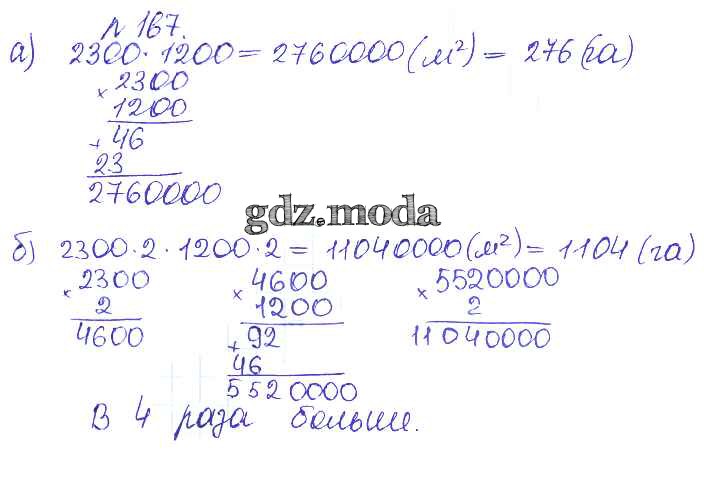 № 167.
а) 2300 · 1200 = 2760000 (м²) = 276 (га)
× 2300
1200
+ 46
23
2760000
gdz.moda
б) 2300·2 · 1200·2 = 11040000 (м²) = 1104 (га)
× 2300 × 4600 × 5520000
2 1200 2
4600 + 92 11040000
46
5520000
В 4 раза больше.